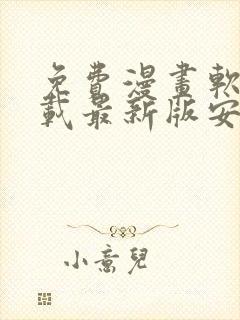 免費漫畫軟
載最新版安
小意兒